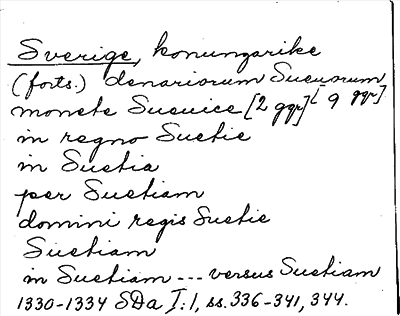 Sverige, konungarike
(forts.) denariorum Sueuorum
monete Sueuice [2 ggr] [9 ggr]
in regno Suetie
in Suetia
per Suetiam
domini regis Suetie
Suetiam
in Suetiam --- versus Suetiam
1330-1334 SDa I:1, ss. 336-341, 344.